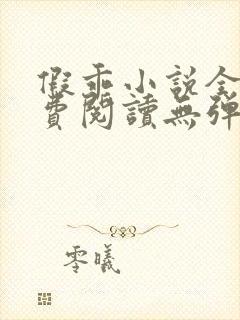 假乖小說全
費閱讀無彈
零曦